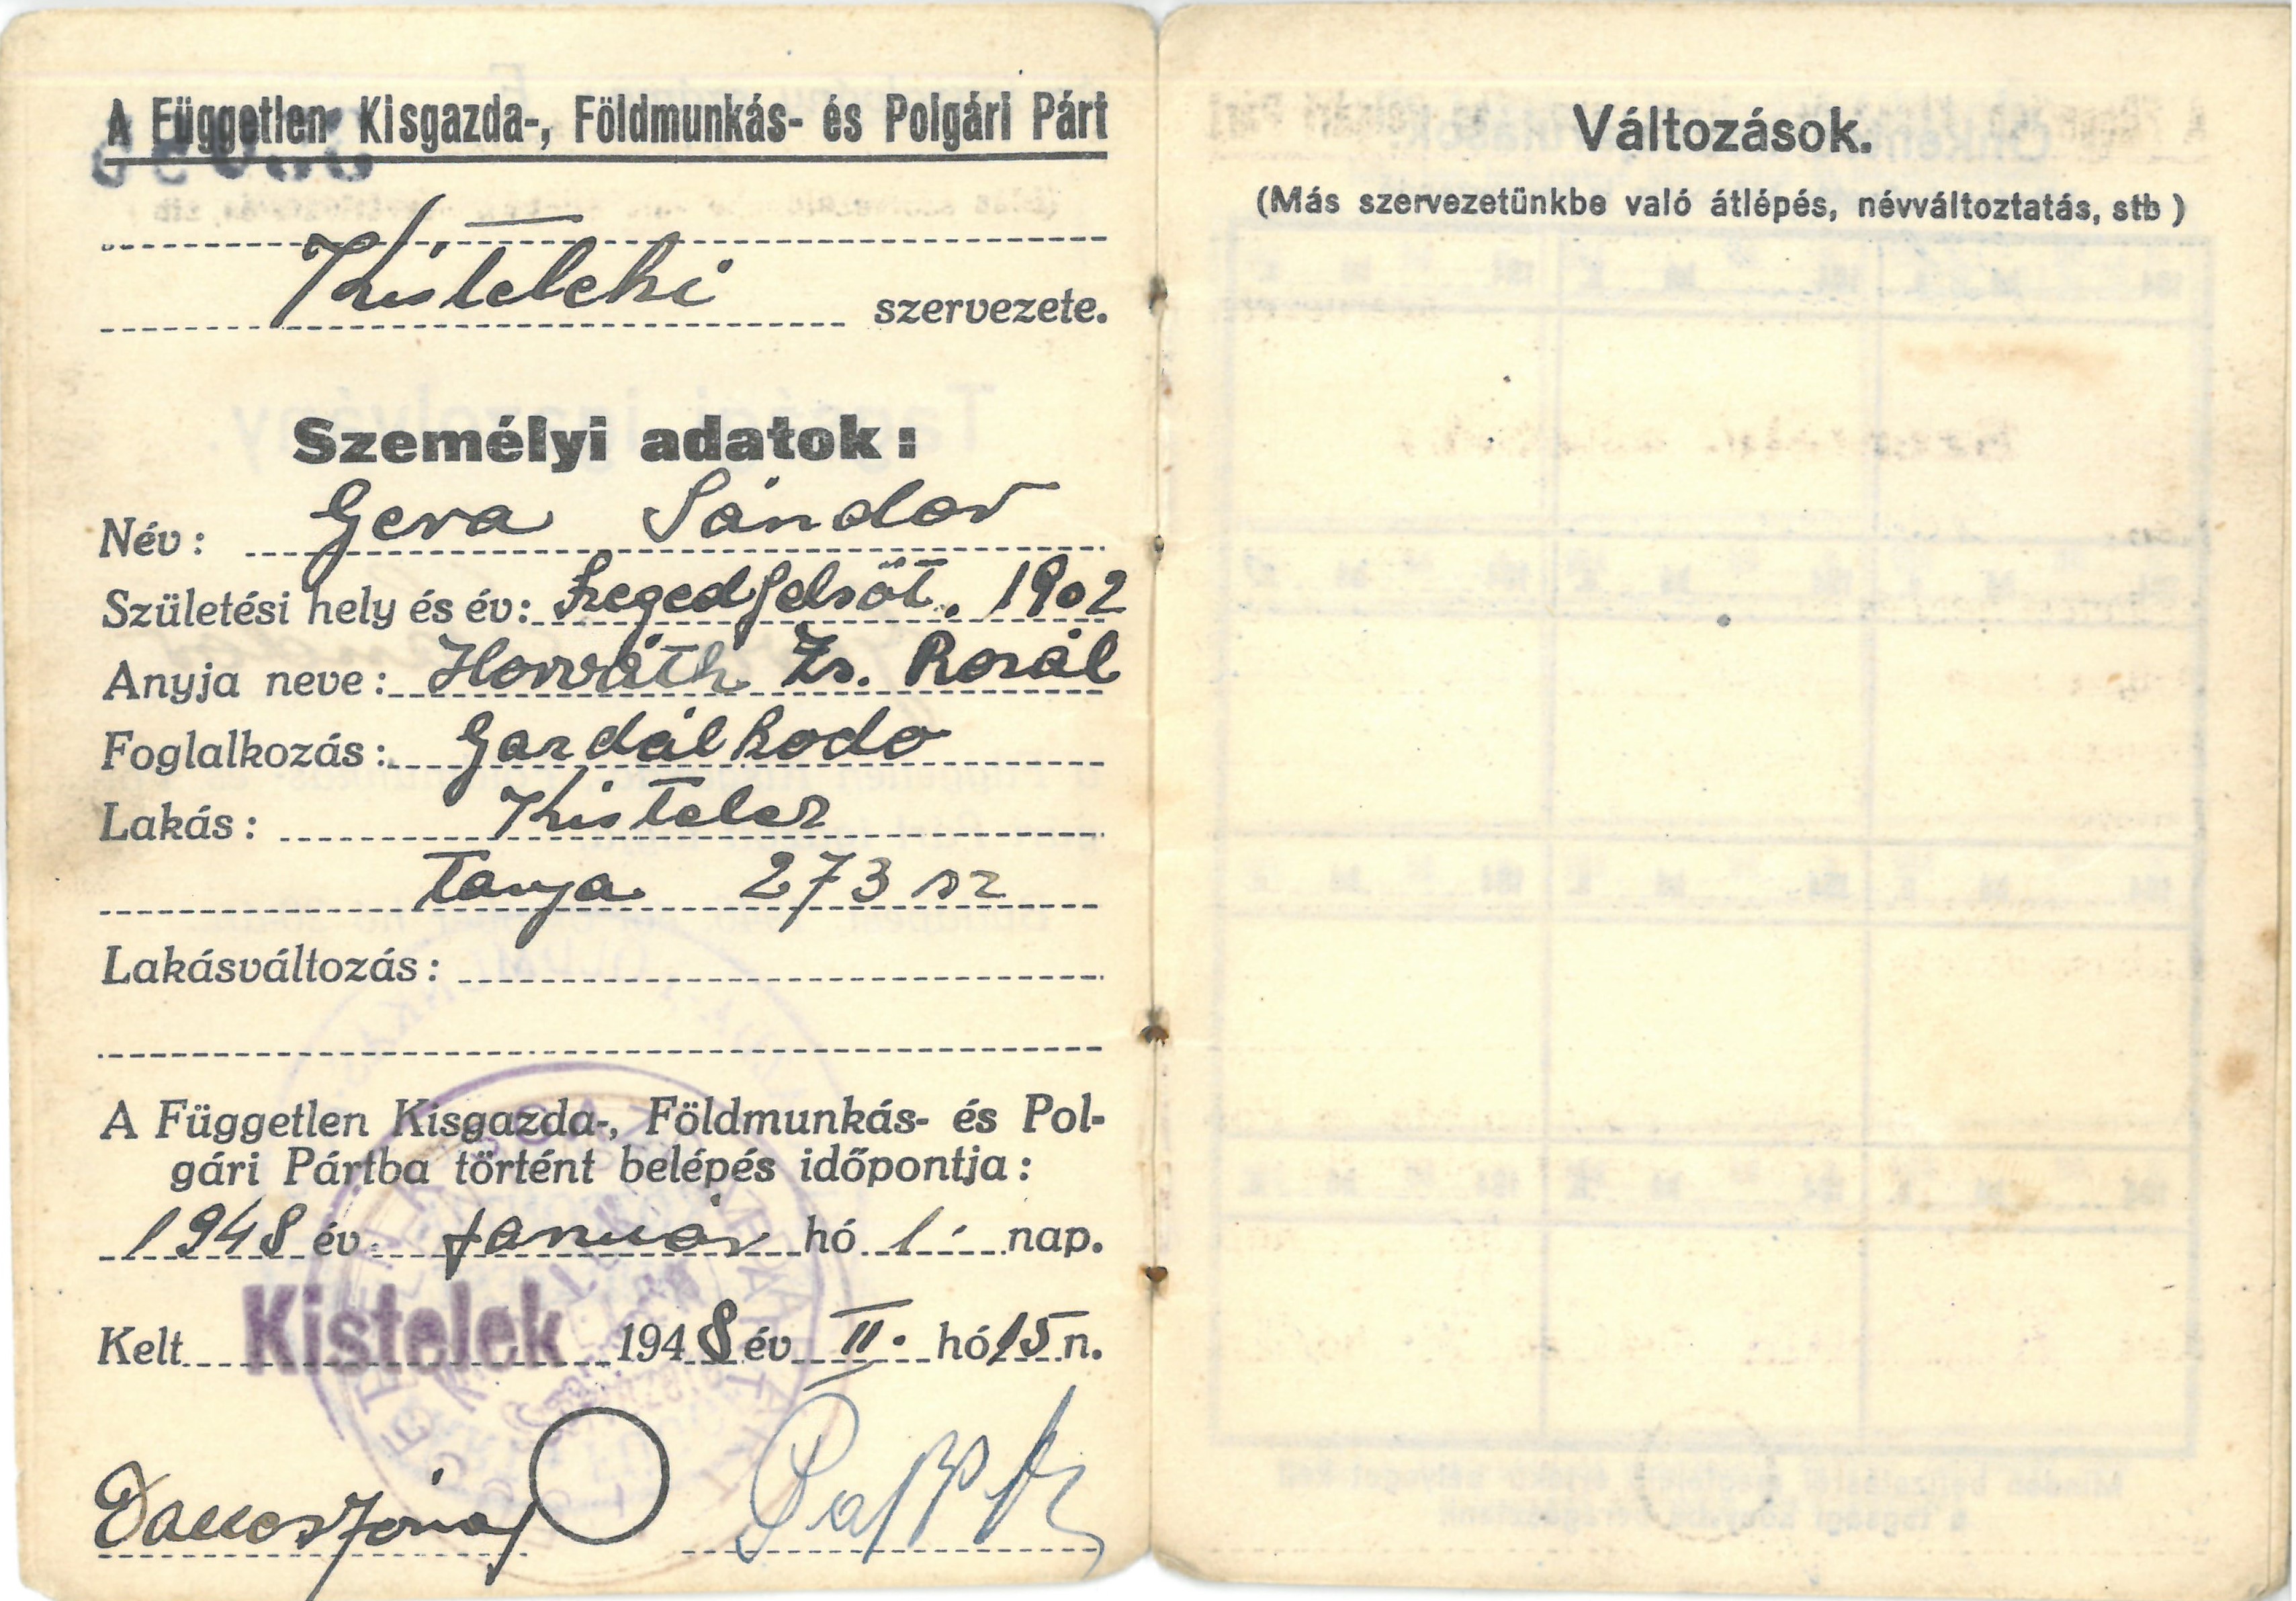 A Független Kisgazda-, Földmunkás- és Polgári Párt
Kisteleki
szervezete.
Személyi adatok:
Név: Gera Sándor
Születési hely és év: Szegedfelsőt. 1902
Anyja neve: Horváth Zs. Rozál
Foglalkozás: Gazdálkodo
Lakás: Kistelek
Tanya 273 sz
Lakásváltozás:
A Független Kisgazda-, Földmunkás- és Pol-
gári Pártba történt belépés időpontja:
1948 év Január hó 1. nap.
Kelt Kistelek 1948 év II. hó 15 n.
Változások.
(Más szervezetünkbe való átlépés, névváltoztatás, stb)